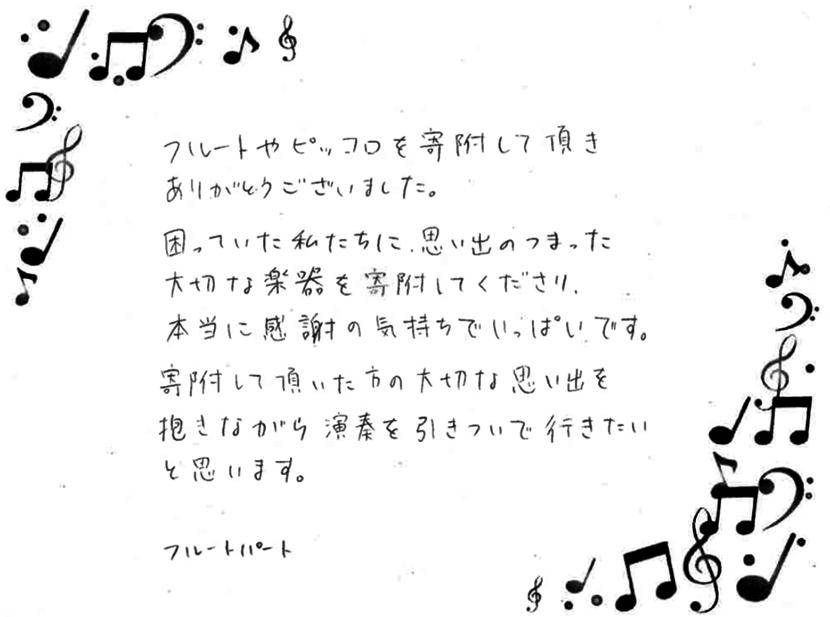 フルートやピッコロを寄附して頂き
ありがとうございました。
困っていた私たちに、思い出のつまった
大切な楽器を寄附してくださり、
本当に感謝の気持ちでいっぱいです。
寄附して頂いた方の大切な思い出を
抱きながら演奏を引きついで行きたい
と思います。
フルートパート